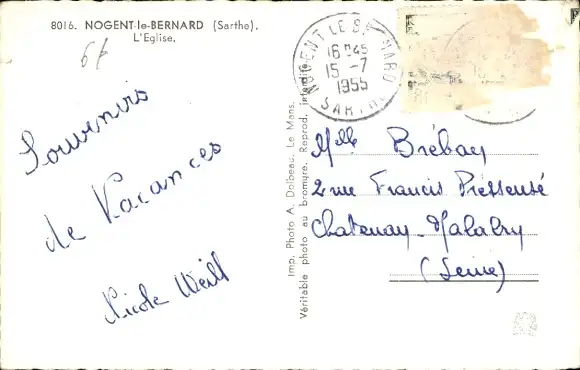 8016. NOGENT-le-BERNARD (Sarthe).
L'Eglise.
6f
Souvenirs
de Vacances
Nicole Weill
Imp. Photo A. Dolbeau, Le Mans.
Véritable photo au bromure. Reprod. interdite
NOGENT LE BERNARD
16H45
15-7
1955
SARTHE
Mlle Brébay
2 rue Francis Pressensé
Chatenay-Malabry
(Seine)